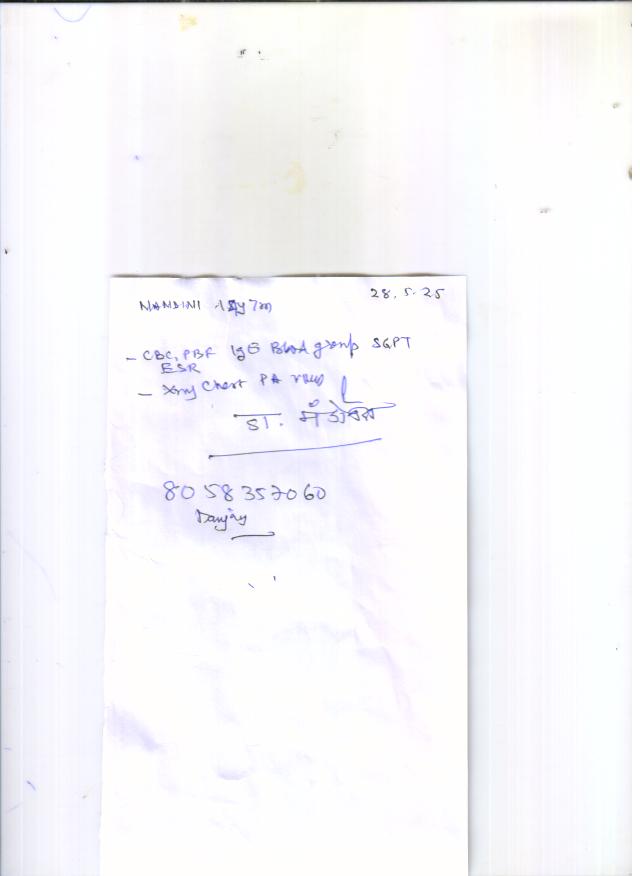 NANDINI 7m 28.5.25
- CBC, PBF IgE Blood group SGPT
ESR
- Xray Chest PA view
डा.
8058357060